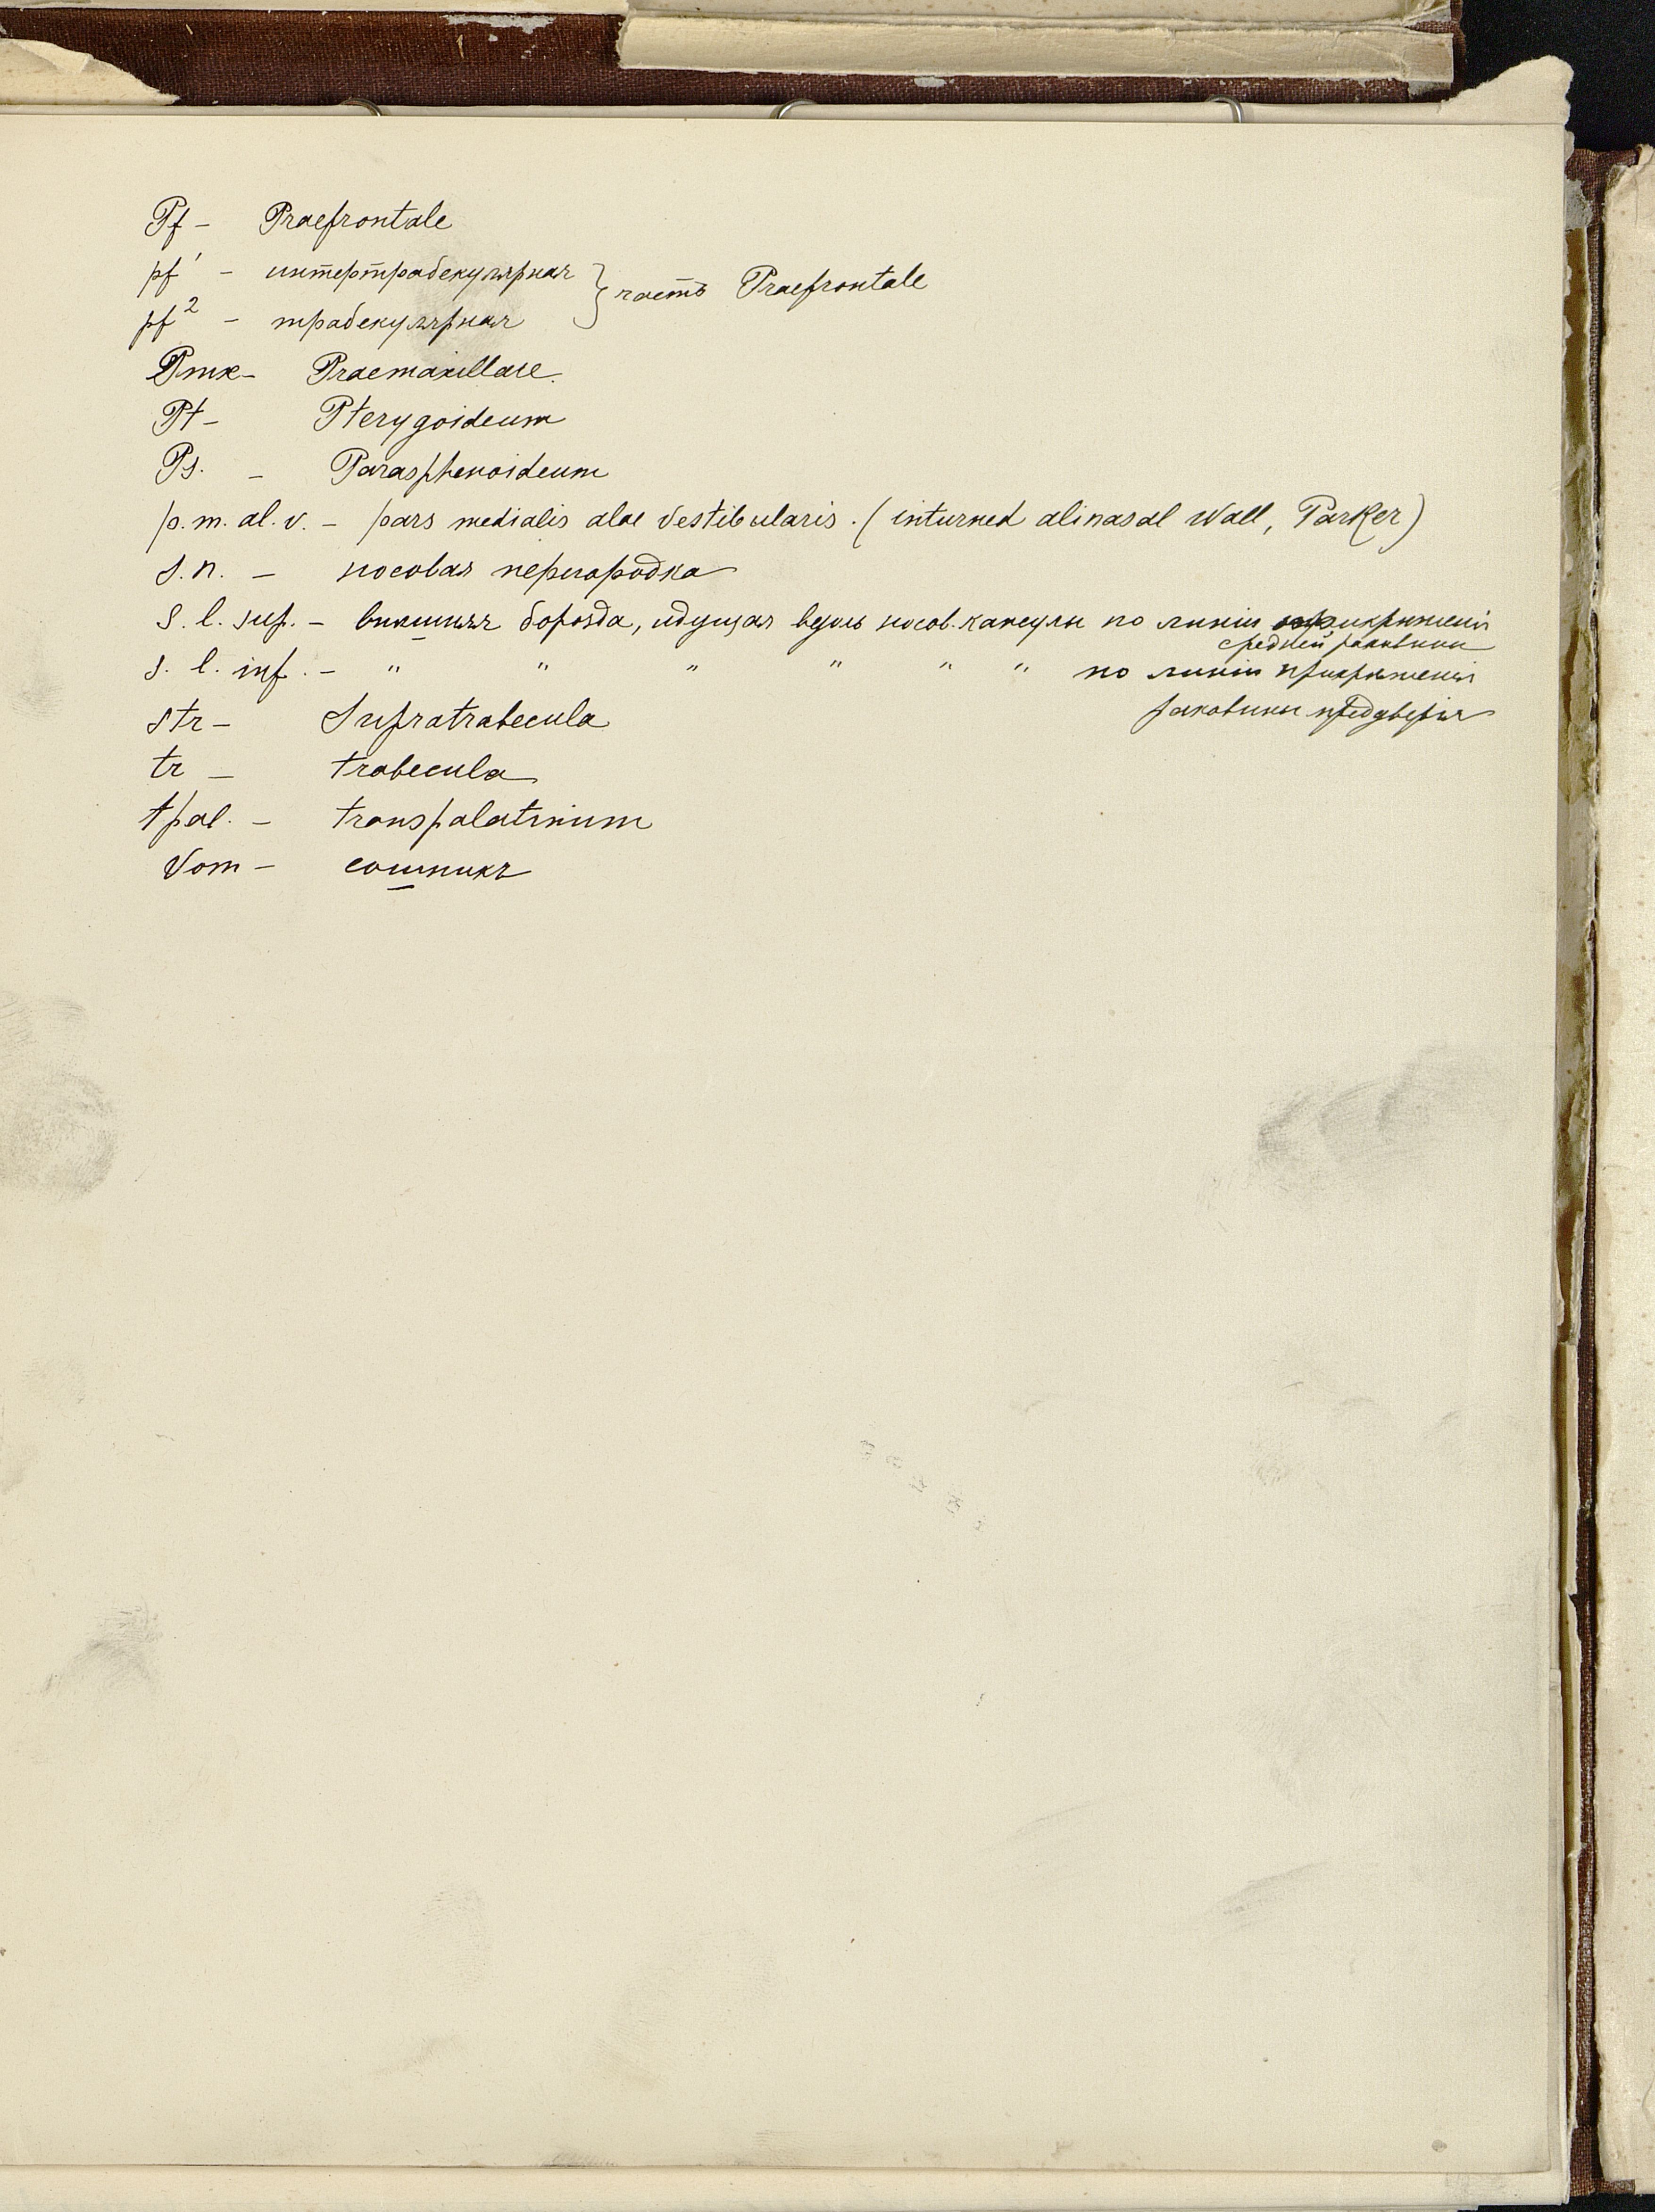 Pf – Praefrontale
pf' – интертрабекулярная } часть Praefrontale
pf² – трабекулярная
Pmx – Praemaxillare.
Pt – Pterygoideum
Ps. – Parasphenoideum
p.m. al. v. – pars medialis alae vestibularis. (inturned alinasal wall, Parker)
s.n. – носовая перегородка
s. l. sup. – внешняя борозда, идущая вдоль носов. капсулы по линіи прикрѣпленія
средней раковины
s. l. inf. – " " " " " " по линіи прикрѣпленія
раковины предверія
str – Supratrabecula
tr – trabecula
tpal. – transpalatinum
Vom – сошникъ